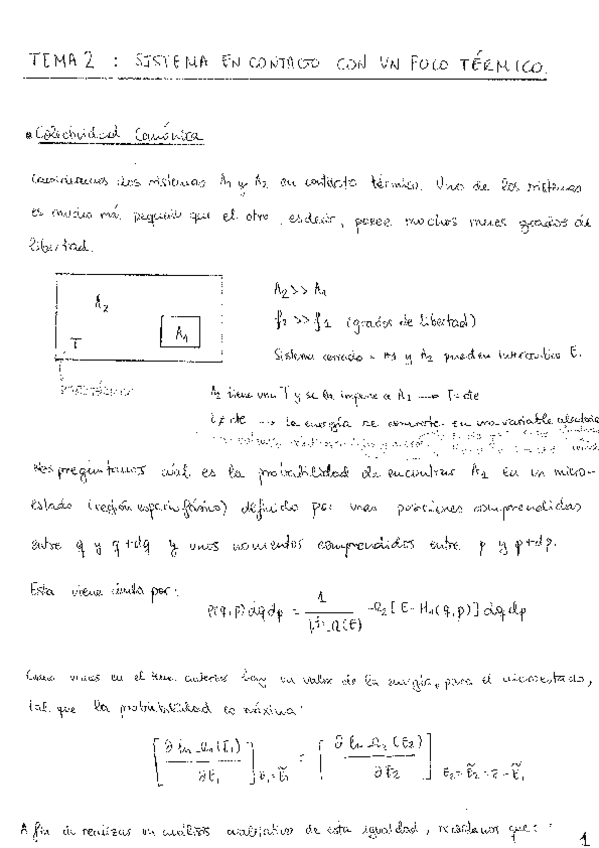 TEMA 2 : SISTEMA EN CONTACTO CON UN FOCO TÉRMICO.
• Colectividad Canónica
Consideramos dos sistemas A₁ y A₂ en contacto térmico. Uno de los sistemas
es mucho más pequeño que el otro, es decir, posee muchos menos grados de
libertad.
A₂
T
A₁
A₂ >> A₁
f₂ >> f₁ (grados de libertad)
Sistema cerrado - A₁ y A₂ pueden intercambio E.
A₂ tiene una T y se la impone a A₁ → T=cte
E≠cte → la energía se convierte en una variable aleatoria
Nos preguntamos cuál es la probabilidad de encontrar A₁ en un micro-
estado (región espacio fásico) definido por unas posiciones comprendidas
entre q y q+dq y unos momentos comprendidos entre p y p+dp.
Esta viene dada por:
ρ(q,p) dq dp = 1 / Ω(E) Ω₂ [E - H₁(q,p)] dq dp
Como vimos en el tema anterior hay un valor de la energía, para el microestado,
tal que la probabilidad es máxima:
[∂ ln Ω₁(E₁) / ∂E₁] E₁=Ẽ₁ = [∂ ln Ω₂(E₂) / ∂E₂] E₂=Ẽ₂=E-Ẽ₁
A fin de realizar un análisis cualitativo de esta igualdad, recordamos que:
1